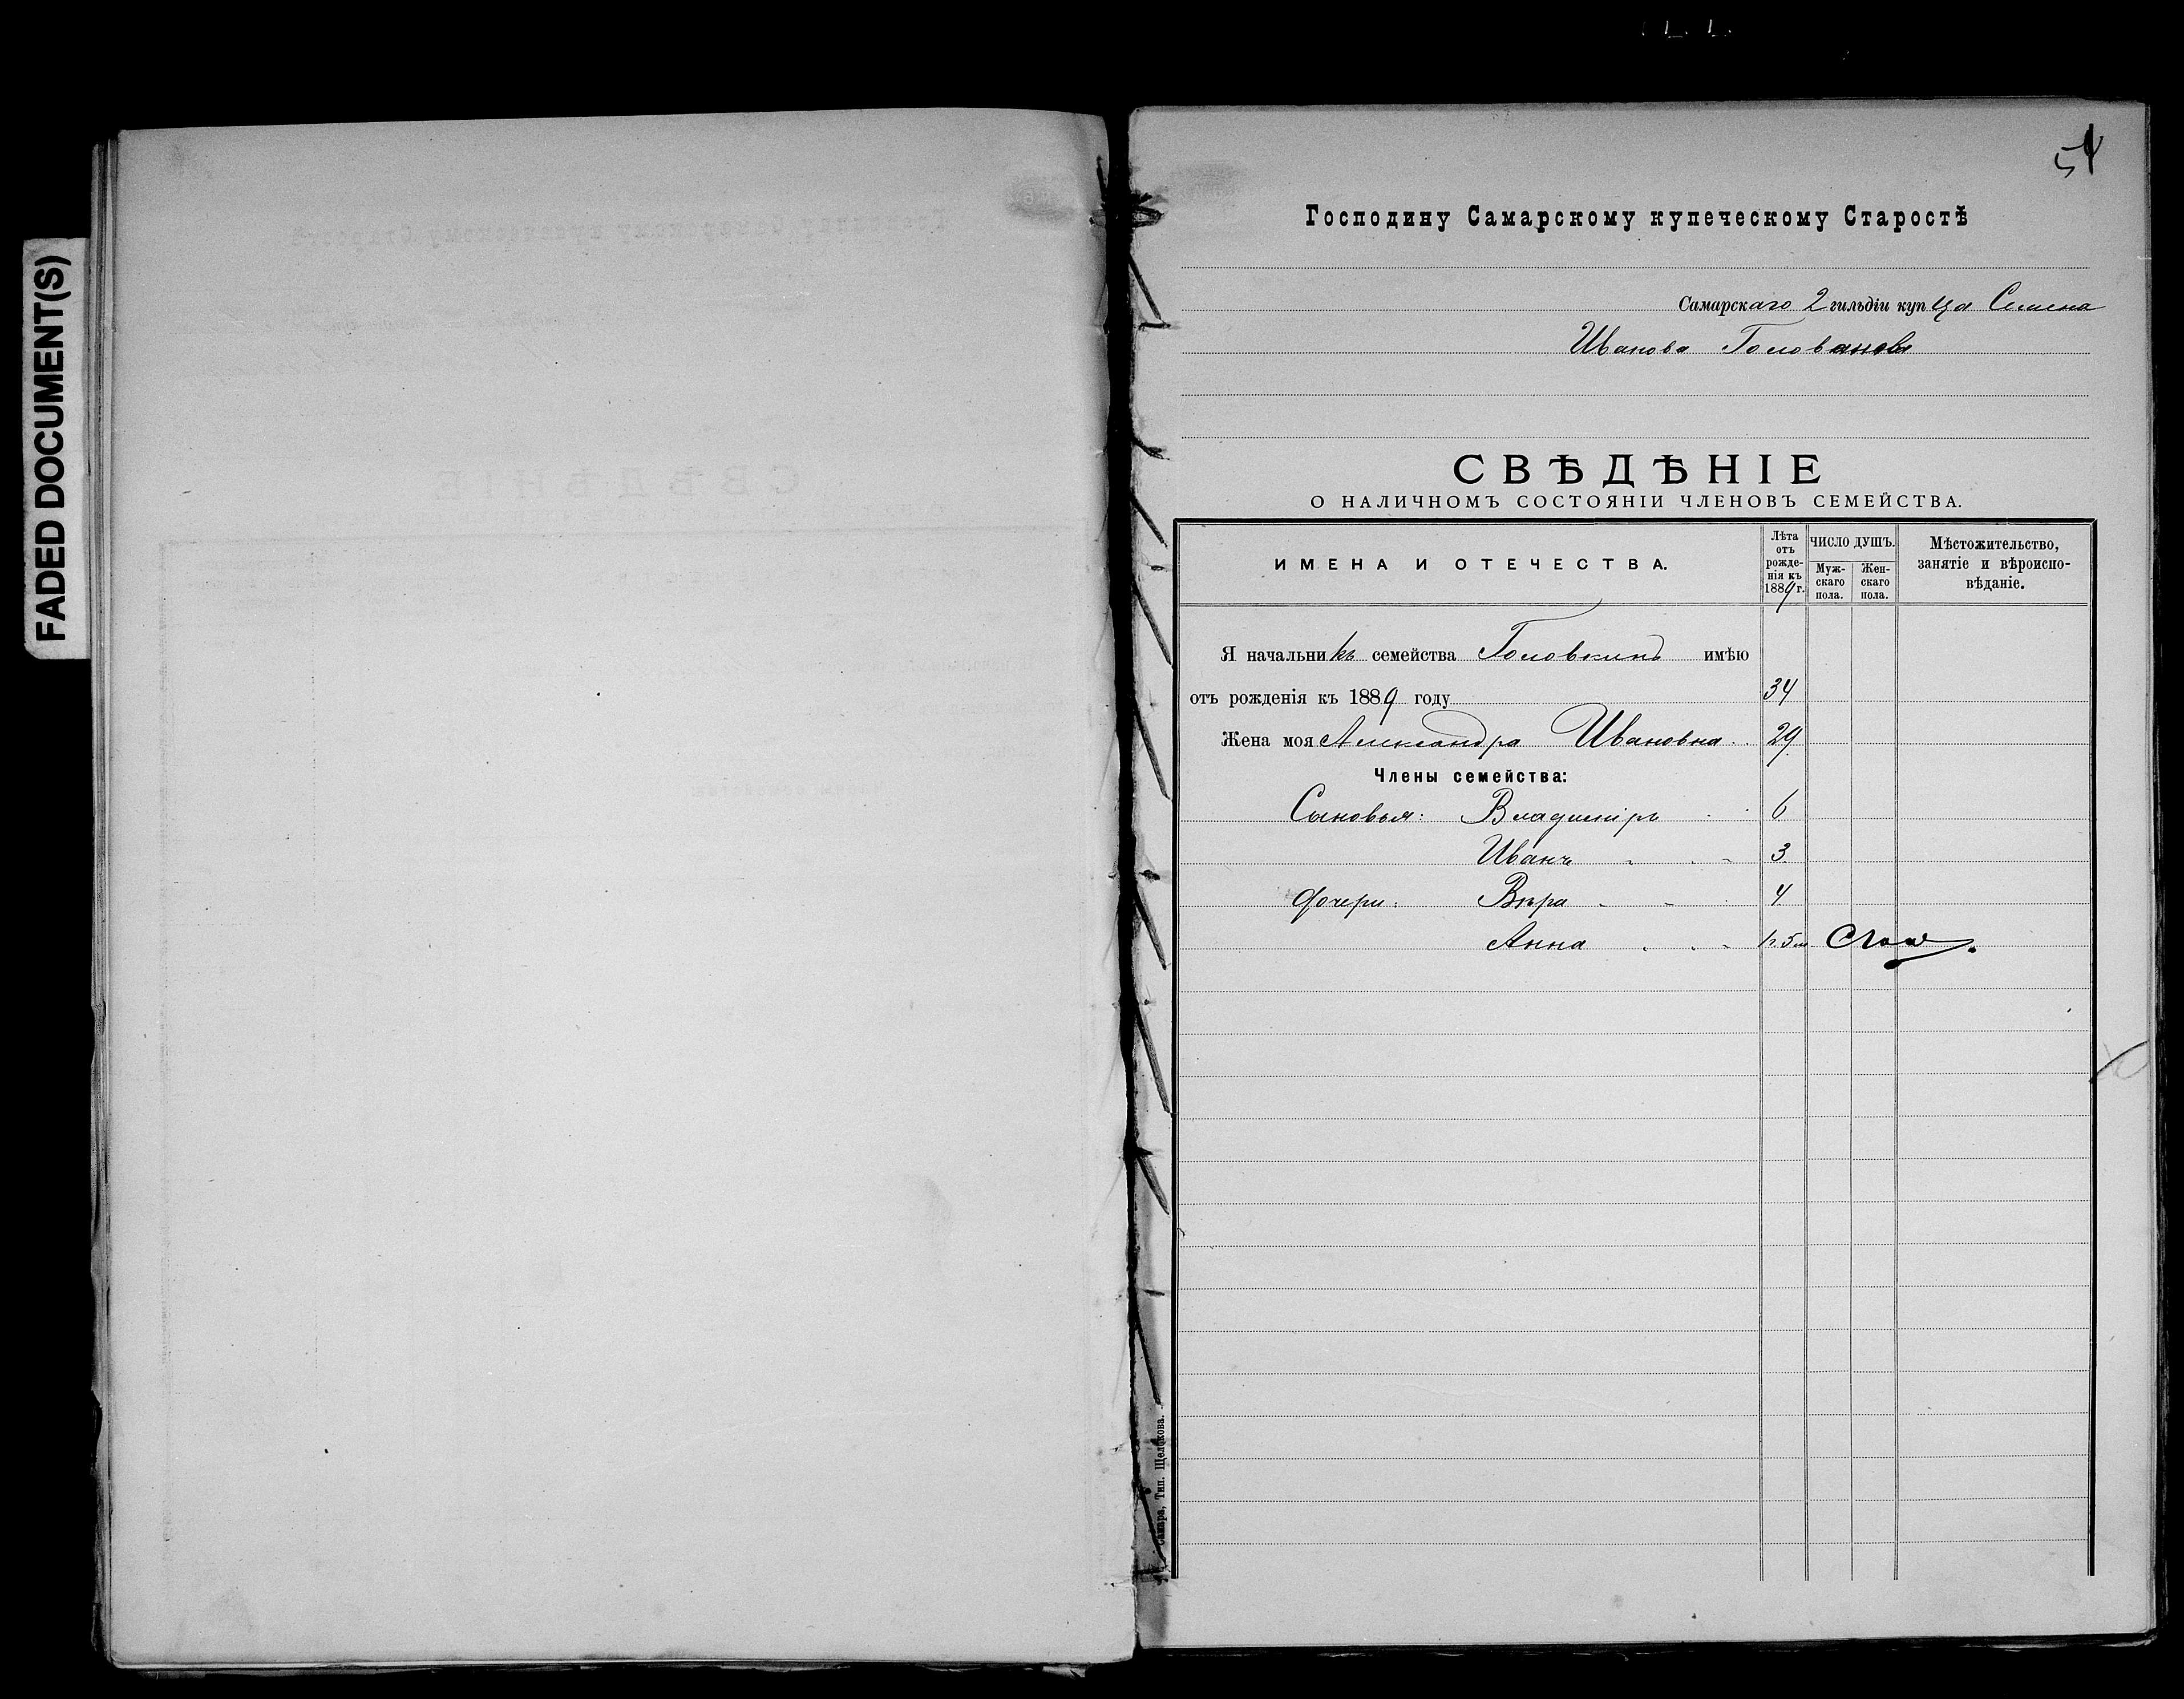 FADED DOCUMENT(S)
54
Господину Самарскому купеческому Старостѣ
Самарскаго 2 гильдіи купца Семена
Иванова Голованова
СВѢДѢНІЕ
О НАЛИЧНОМЪ СОСТОЯНІИ ЧЛЕНОВЪ СЕМЕЙСТВА.
ИМЕНА И ОТЕЧЕСТВА.
Лѣта отъ рожденія къ 1889 г.
ЧИСЛО ДУШЪ.
Мужскаго пола.
Женскаго пола.
Мѣстожительство, занятіе и вѣроисповѣданіе.
Я начальникъ семейства Головкинъ имѣю
отъ рожденія къ 1889 году 34
Жена моя Александра Ивановна 29
Члены семейства:
Сыновья: Владиміръ 6
Иванъ 3
Дочери: Вѣра 4
Анна
Самара, Тип. Щелокова.